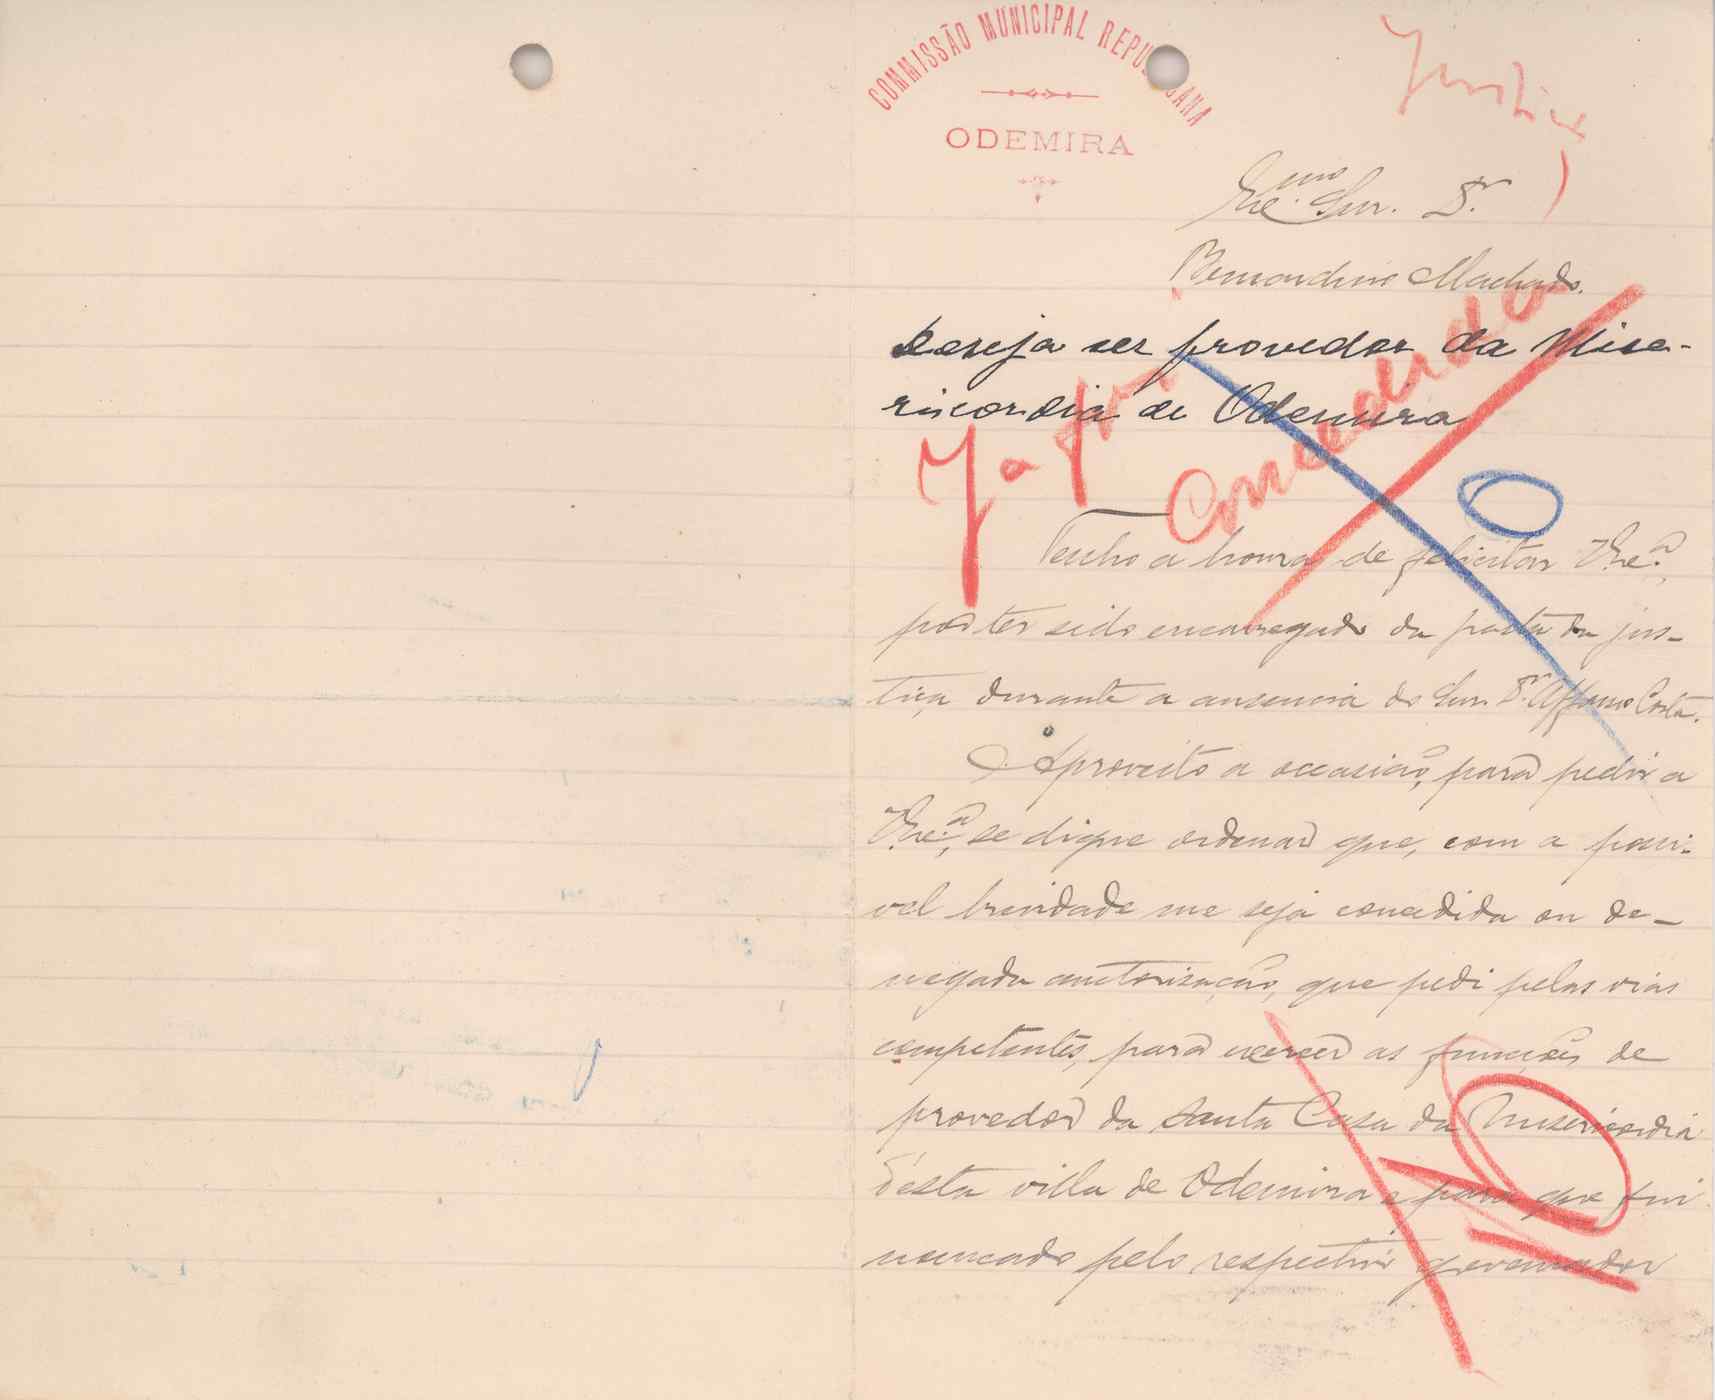 COMMISSÃO MUNICIPAL REPUBLICANA
ODEMIRA
Justiça
Exc.mo Snr. Dr.
Bernardino Machado.
Deseja ser provedor da Mise-
ricordia de Odemira
Já foi concedida
Tenho a honra de felicitar V. Exc.a,
por ter sido encarregado da pasta da jus-
tiça durante a ausencia do Snr. Dr. Affonso Costa.
Aproveito a occasião, para pedir a
V. Exc.a, se digne ordenar que, com a possi-
vel brevidade me seja concedida ou de-
negada auctorisação, que pedi pelas vias
competentes, para exercer as funcções de
provedor da Santa Casa da Misericordia
d'esta villa de Odemira e para que fui
nomeado pelo respectivo governador